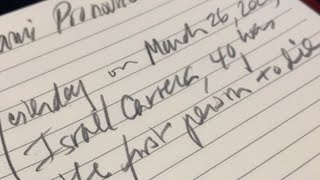 Yesterday on March 26, 202
Israel Carrera, 40, was
the first person to die